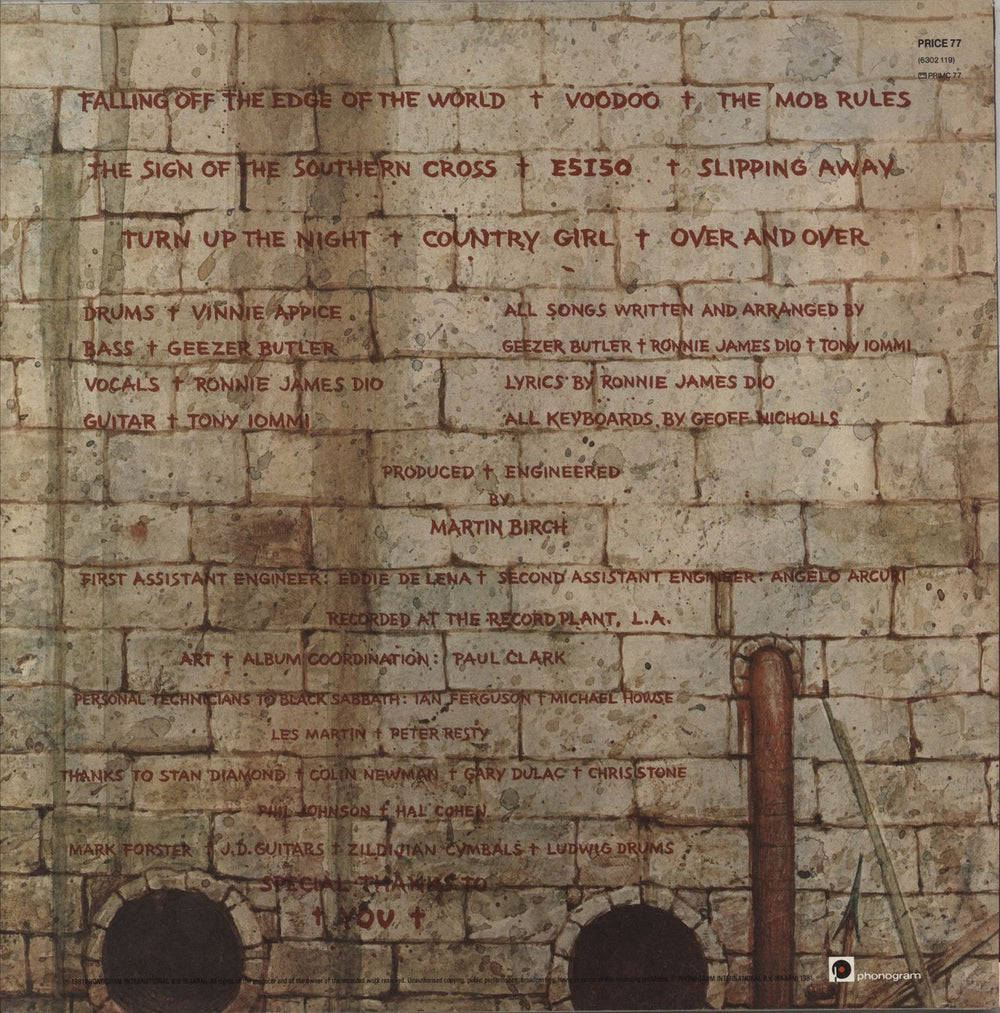 PRICE 77
(6302 119)
PRIMC 77
FALLING OFF THE EDGE OF THE WORLD † VOODOO † THE MOB RULES
THE SIGN OF THE SOUTHERN CROSS † E5150 † SLIPPING AWAY
TURN UP THE NIGHT † COUNTRY GIRL † OVER AND OVER
DRUMS † VINNIE APPICE
BASS † GEEZER BUTLER
VOCALS † RONNIE JAMES DIO
GUITAR † TONY IOMMI
ALL SONGS WRITTEN AND ARRANGED BY
GEEZER BUTLER † RONNIE JAMES DIO † TONY IOMMI
LYRICS BY RONNIE JAMES DIO
ALL KEYBOARDS BY GEOFF NICHOLLS
PRODUCED † ENGINEERED
BY
MARTIN BIRCH
FIRST ASSISTANT ENGINEER: EDDIE DE LENA † SECOND ASSISTANT ENGINEER: ANGELO ARCURI
RECORDED AT THE RECORD PLANT, L.A.
ART † ALBUM COORDINATION: PAUL CLARK
PERSONAL TECHNICIANS TO BLACK SABBATH: IAN FERGUSON † MICHAEL HOWSE
LES MARTIN † PETER RESTY
THANKS TO STAN DIAMOND † COLIN NEWMAN † GARY DULAC † CHRIS STONE
PHIL JOHNSON † HAL COHEN
MARK FORSTER † J.D. GUITARS † ZILDJIAN CYMBALS † LUDWIG DRUMS
SPECIAL THANKS TO
† YOU †
phonogram